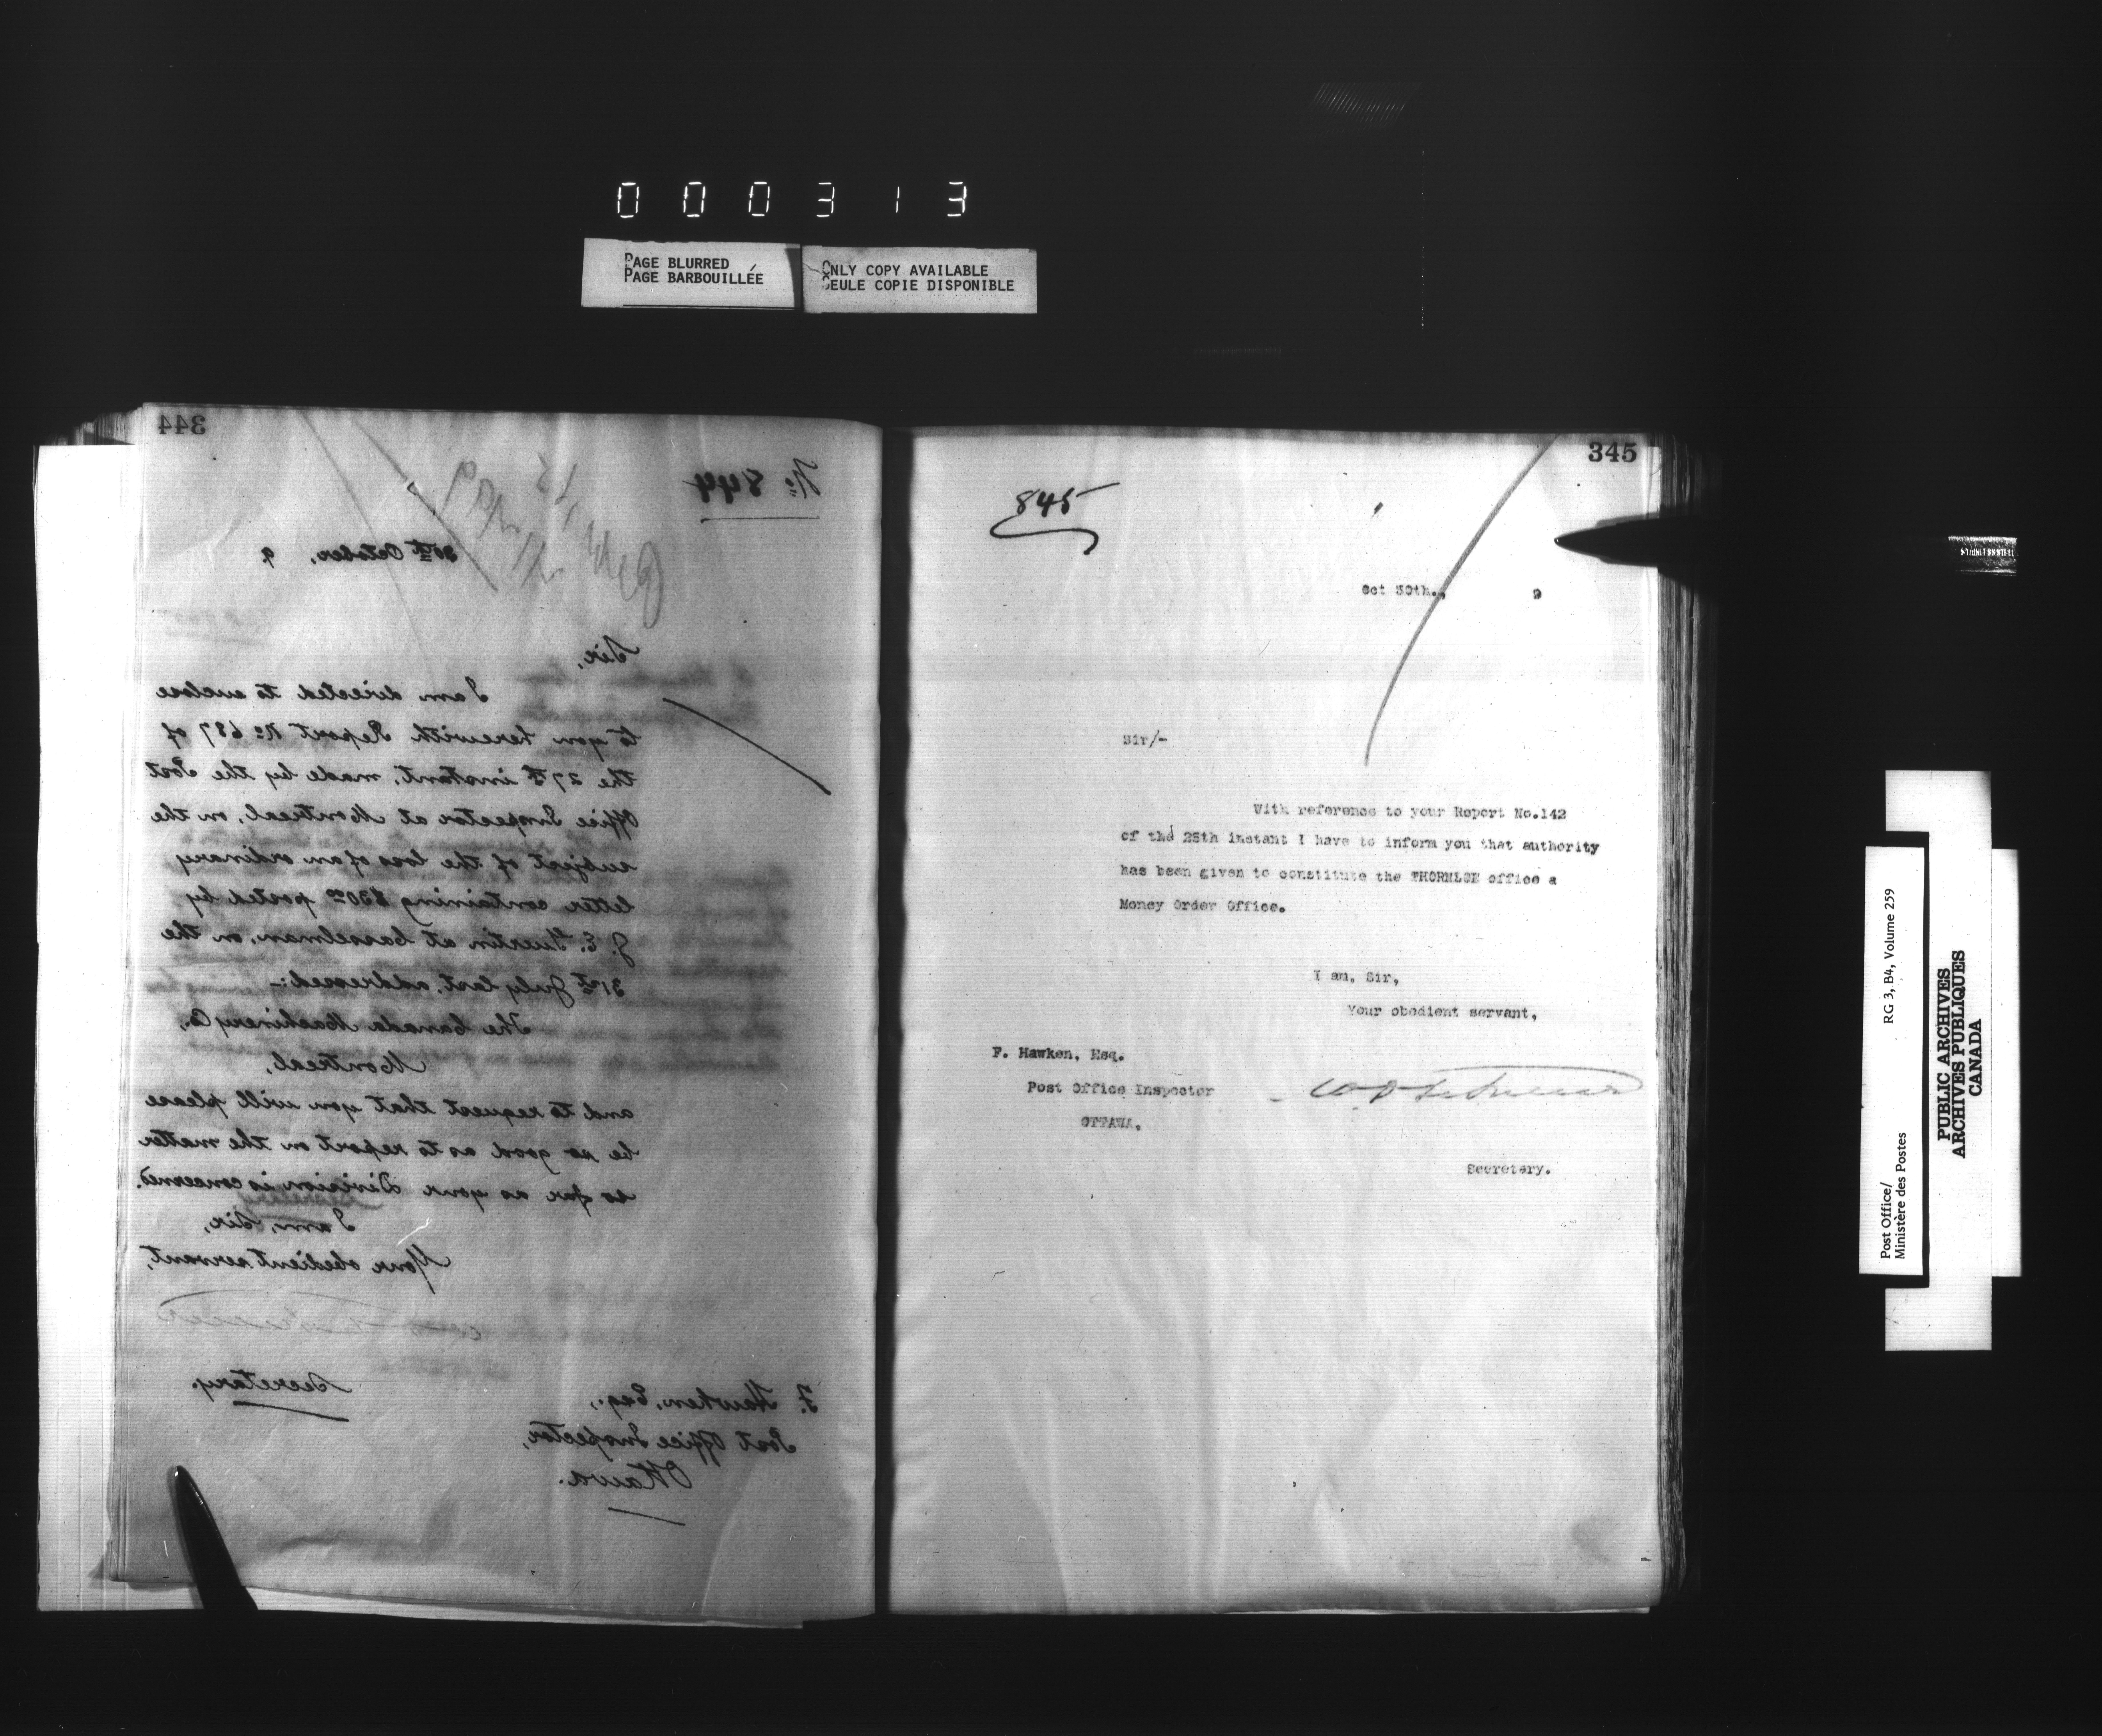 000313
PAGE BLURRED
PAGE BARBOUILLÉE
ONLY COPY AVAILABLE
SEULE COPIE DISPONIBLE
344
No. 844
30th October, 9
Sir,
I am directed to enclose
to you herewith Report No. 687 of
the 27th instant, made by the Post
Office Inspector at Montreal, on the
subject of the loss of an ordinary
letter containing $30.00 posted by
J. E. Guertin at Casselman, on the
31st July last, addressed:-
The Canada Machinery Co.,
Montreal,
and to request that you will please
be so good as to report on the matter
so far as your Division is concerned.
I am, Sir,
Your obedient servant,
Secretary.
F. Hawken, Esq.,
Post Office Inspector,
Ottawa.
345
845
Oct 30th., 9
Sir/-
With reference to your Report No.142
of the 25th instant I have to inform you that authority
has been given to constitute the THORNLOE office a
Money Order Office.
I am, Sir,
Your obedient servant,
F. Hawken, Esq.
Post Office Inspector
OTTAWA.
Secretary.
Post Office/
Ministère des Postes
RG 3, B4, Volume 259
PUBLIC ARCHIVES
ARCHIVES PUBLIQUES
CANADA